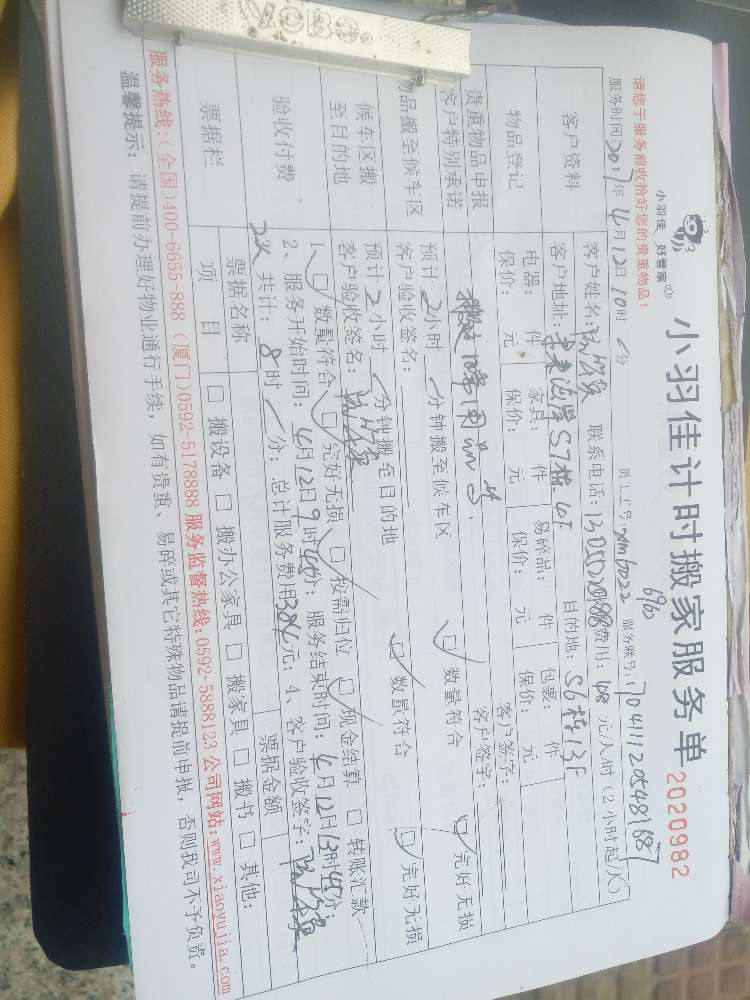 请您于服务前收拾好您的贵重物品!
小羽佳 好管家
小羽佳计时搬家服务单 2020982
服务时间:2017年4月12日10时 分
员工工号:xm6022 服务账号:1704111205481687
6960
客户资料
客户姓名: 联系电话: 费用: 元/人/时(2小时起)
客户地址: S7栋 4F 目的地: S6栋13F
物品登记
电器: 件 家具: 件 易碎品: 件 包裹: 件
保价: 元 保价: 元 保价: 元 保价: 元
贵重物品申报
客户特别承诺
客户签字:
客户签字:
物品搬至候车区
预计2小时 分钟搬至候车区 □ 数量符合 □ 完好无损
客户验收签名:
候车区搬
至目的地
预计2小时 分钟搬至目的地 □ 数量符合 □ 完好无损
客户验收签名:
验收付费
1、□ 数量符合 □ 完好无损 □ 按需归位 □ 现金结算 □ 转账汇款
2、服务开始时间:4月12日9时45分;服务结束时间:4月12日13时45分;
2人 共计:8时 分;总计服务费用384元;4、客户验收签字:
票据栏
票据名称 票据金额
项 目 □ 搬设备 □ 搬办公家具 □ 搬家具 □ 搬书 □ 其他:
服务热线:(全国)400-6655-888 (厦门)0592-5178888 服务监督热线:0592-5888123 公司网站:www.xiaoyujia.com
温馨提示: 请提前办理好物业通行手续,如有贵重、易碎或其它特殊物品请提前申报,否则我司不予负责。